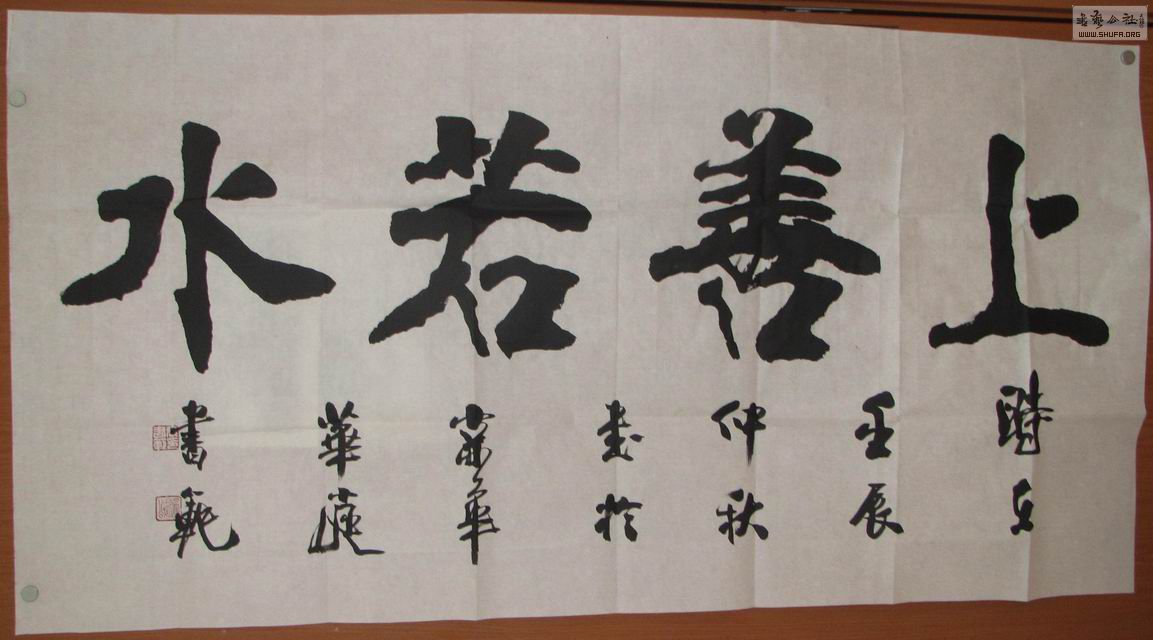 上善若水
時在
壬辰
仲秋
書於
華
書
書藝公社
WWW.SHUFA.ORG